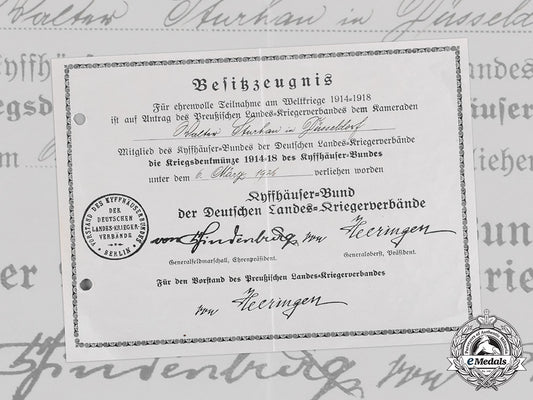 Besitzeugnis
Für ehrenvolle Teilnahme am Weltkriege 1914-1918
ist auf Antrag des Preußischen Landes-Kriegerverbandes dem Kameraden
Walter Sturhan in Düsseldorf
Mitglied des Kyffhäuser-Bundes der Deutschen Landes-Kriegerverbände
die Kriegsdenkmünze 1914-18 des Kyffhäuser-Bundes
unter dem 6. März 1926 verliehen worden
Kyffhäuser-Bund
der Deutschen Landes-Kriegerverbände
VORSTAND DES KYFFHÄUSERBUNDES
DER
DEUTSCHEN
LANDES-KRIEGER-
VERBÄNDE
BERLIN
von Hindenburg
von Heeringen
Generalfeldmarschall, Ehrenpräsident.
Generaloberst, Präsident.
Für den Vorstand des Preußischen Landes-Kriegerverbandes
von Heeringen
eMedals